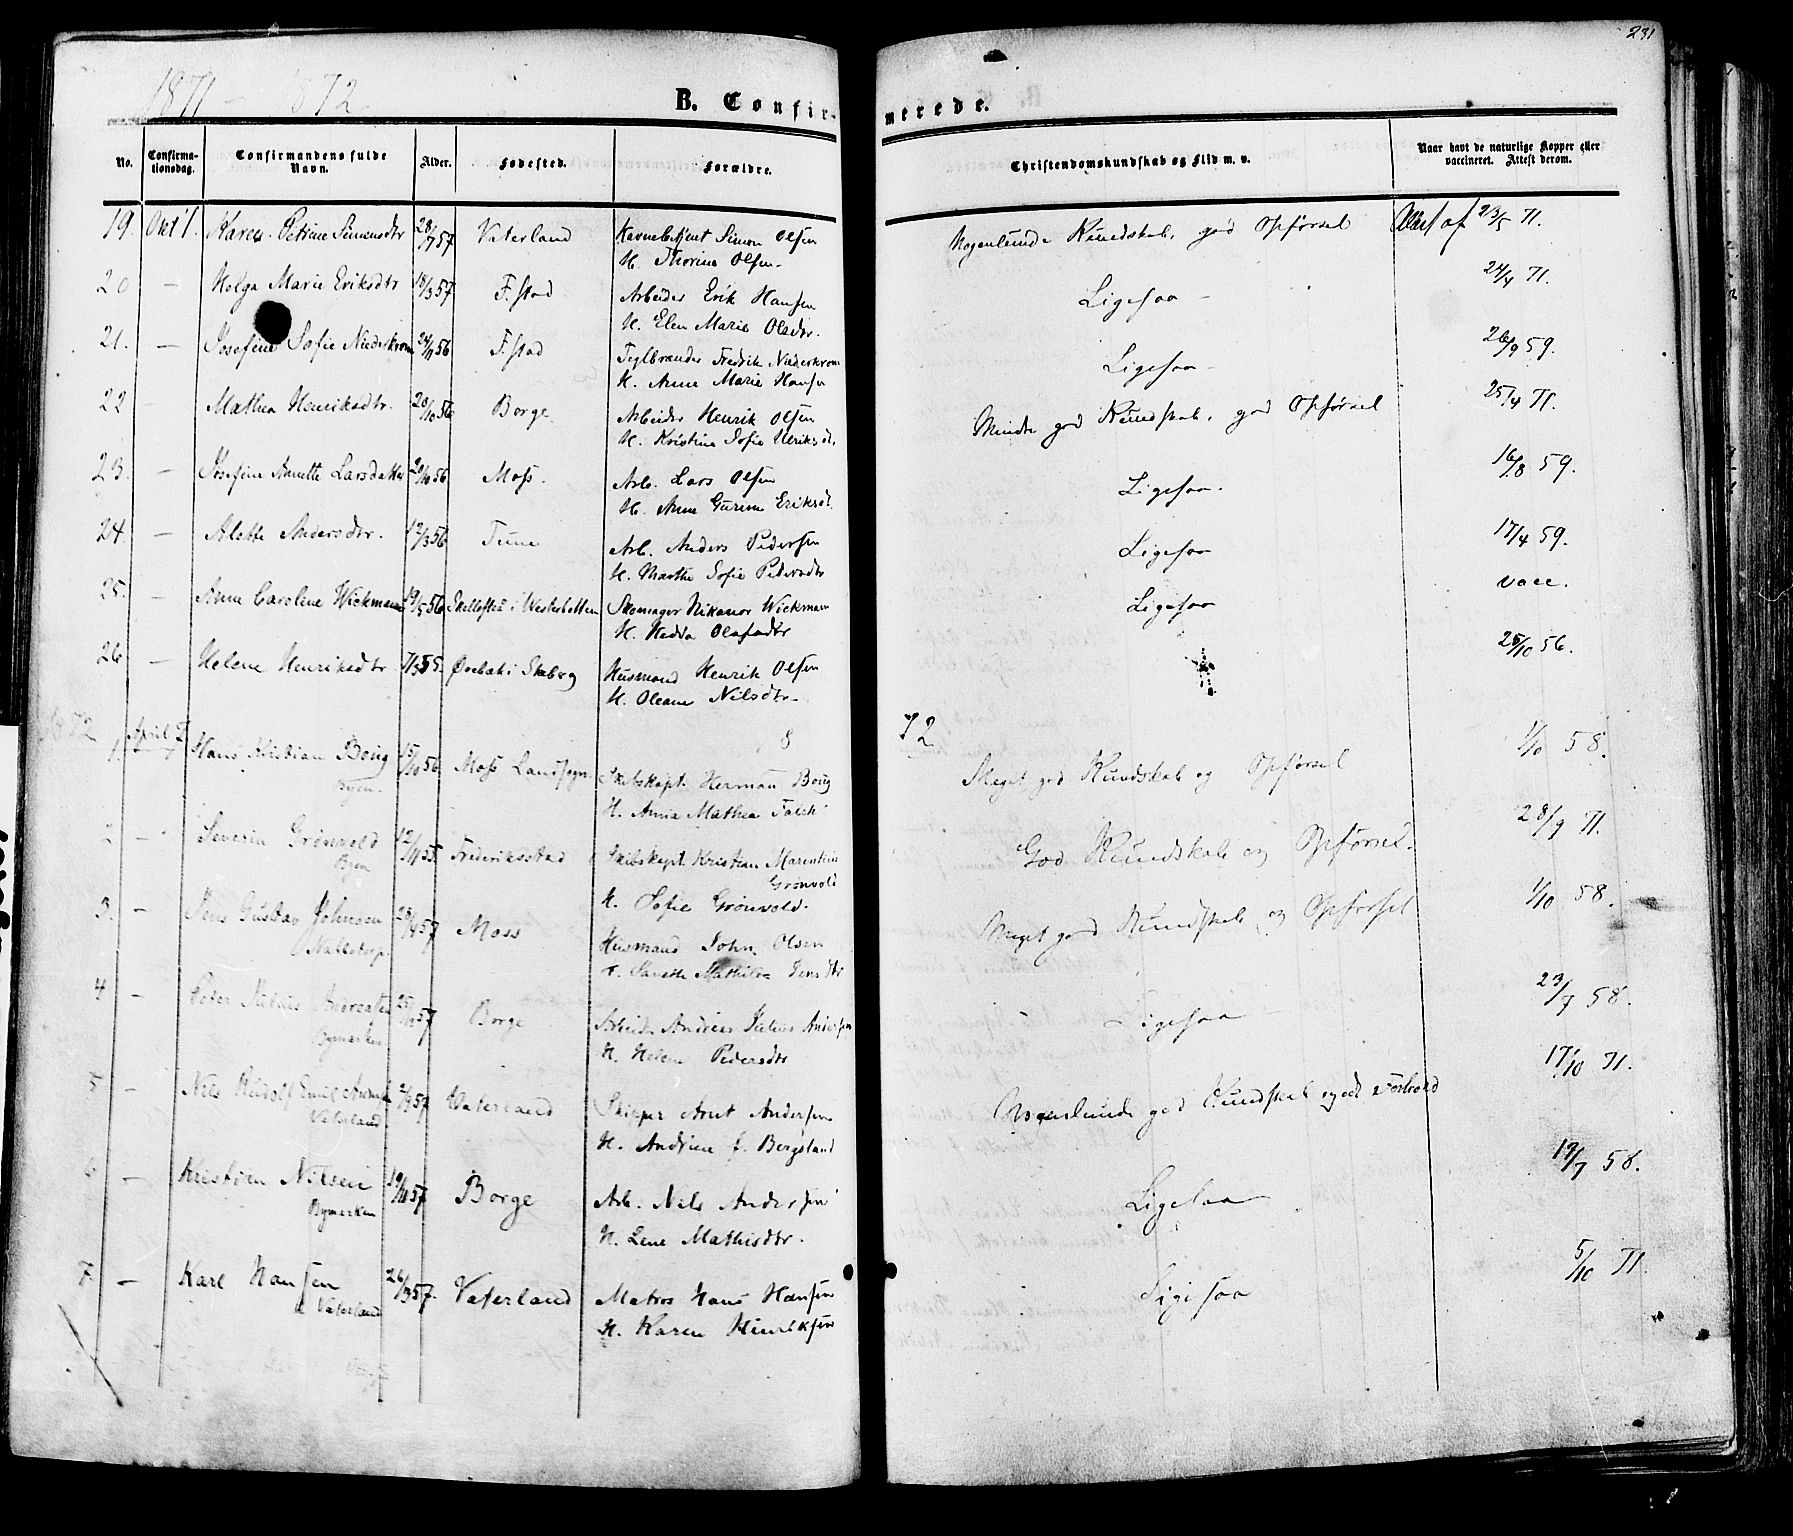 231
1871 - 1872
B. Confirmerede.
No. Confirmationsdag. Confirmandens fulde Navn. Alder. Fødested. Forældre. Christendomskundskab og Flid m. v. Naar havt de naturlige Kopper eller vaccineret. Attest derom.
19. Okt 1. Karen Petrine Simensdtr 28/7 57 Vaterland Simon Olsen Nogenlunde Kundskab, god Opførsel 23/5 71.
H. Thorine Olsen.
20 — Helga Marie Eriksdtr 18/3 57 F.stad Arbeider Erik Hansen Ligesaa — 24/4 71.
H. Elen Marie Olsdtr.
21. — Josefine Sofie Niederkrom 24/11 56 F.stad Teglbrænder Fredrik Niederkrom Ligesaa — 26/9 59.
H. Anne Marie Hansen
22 — Mathea Henriksdtr. 20/10 56 Borge Arbeider Henrik Olsen Mindre god Kundskab, god Opførsel 25/4 71.
H. Kristine Sofie
23. — Josefine Annette Larsdatter 20/10 56 Moss. Arb. Lars Olsen Ligesaa. 16/8 59.
H. Anne Gurine Eriksd.
24. — Alette Andersdtr. 12/3 56 Tune Arb. Anders Pedersen Ligesaa 17/4 59.
H. Marthe Sofie Pedersdtr
25. — Anne Caroline Wickmann 19/5 56 Skellefteå i Westerbotten Skomager Nikanor Wickmann Ligesaa vacc.
H. Hedda Olofsdtr
26 — Helene Henriksdtr 7/3 55. Øvebak i Skeberg Husmand Henrik Olsen 25/10 56.
H. Oleane Nilsdtr.
1872
1. April 7 Hans Kristian Boug 15/10 56 Moss Landsogn Skibskapt. Herman Boug Meget god Kundskab og Opførsel 1/10 58.
Byen. H. Anna Mathea Falch
2 — Severin Grønvold 12/11 55. Frederiksstad Skibskapt. Kristian Marentius God Kundskab og Opførsel. 28/9 71.
Byen Grønvold
H. Sofie Grønvold.
3. — Jens Gustav Johnsen 28/4 57 Moss Husmand John Olsen Meget god Kundskab og Opførsel 1/10 58.
Mathilde Jensdtr
4 — Peter Julius Andreasen 57 Borge Arbeid. Andreas Julius Andersen Ligesaa — 23/7 58.
Bymarken H. Helene Pedersdtr
5 — Nils Rudolf Emil 57 Vaterland Skipper Arnt Andersen Nogenlunde god Kundskab og godt Forhold 17/10 71.
Vaterland H. Andrine f. Bergsland
6 — Kristian Nilsen 19/11 57 Borge Arb. Nils Andersen Ligesaa 19/7 58.
Bymarken H. Lene Mathisdtr.
7. — Karl Hansen 26/3 57. Vaterland Matros Hans Hansen Ligesaa 5/10 71
Vaterland H. Karen Henriksen